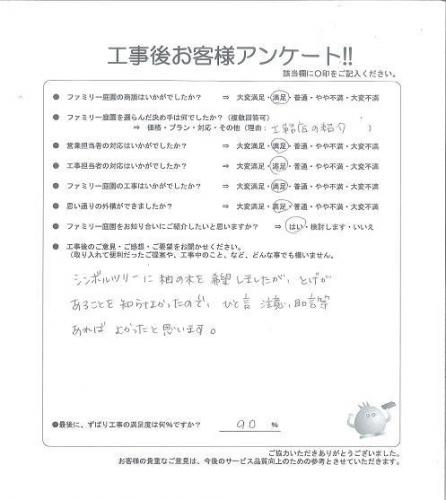 工事後お客様アンケート!!
該当欄に○印をご記入ください。
● ファミリー庭園の商談はいかがでしたか? ⇒ 大変満足・満足・普通・やや不満・大変不満
● ファミリー庭園を選らんだ決め手は何でしたか?(複数回答可)
⇒ 価格・プラン・対応・その他(理由:工務店の紹介)
● 営業担当者の対応はいかがでしたか? ⇒ 大変満足・満足・普通・やや不満・大変不満
● 工事担当者の対応はいかがでしたか? ⇒ 大変満足・満足・普通・やや不満・大変不満
● ファミリー庭園の工事はいかがでしたか? ⇒ 大変満足・満足・普通・やや不満・大変不満
● 思い通りの外構ができましたか? ⇒ 大変満足・満足・普通・やや不満・大変不満
● ファミリー庭園をお知り合いにご紹介したいと思いますか? ⇒ はい・検討します・いいえ
● 工事後のご意見・ご感想・ご要望をお聞かせください。
(取り入れて便利だったご提案や、工事中のこと、など、どんな事でも構いません。
シンボルツリーに柚の木を希望しましたが、とげが
あることを知らなかったので、ひと言 注意、助言等
あれば よかったと思います。
●最後に、ずばり工事の満足度は何%ですか? 90 %
ご協力いただきありがとうございました。
お客様の貴重なご意見は、今後のサービス品質向上のための参考とさせていただきます。